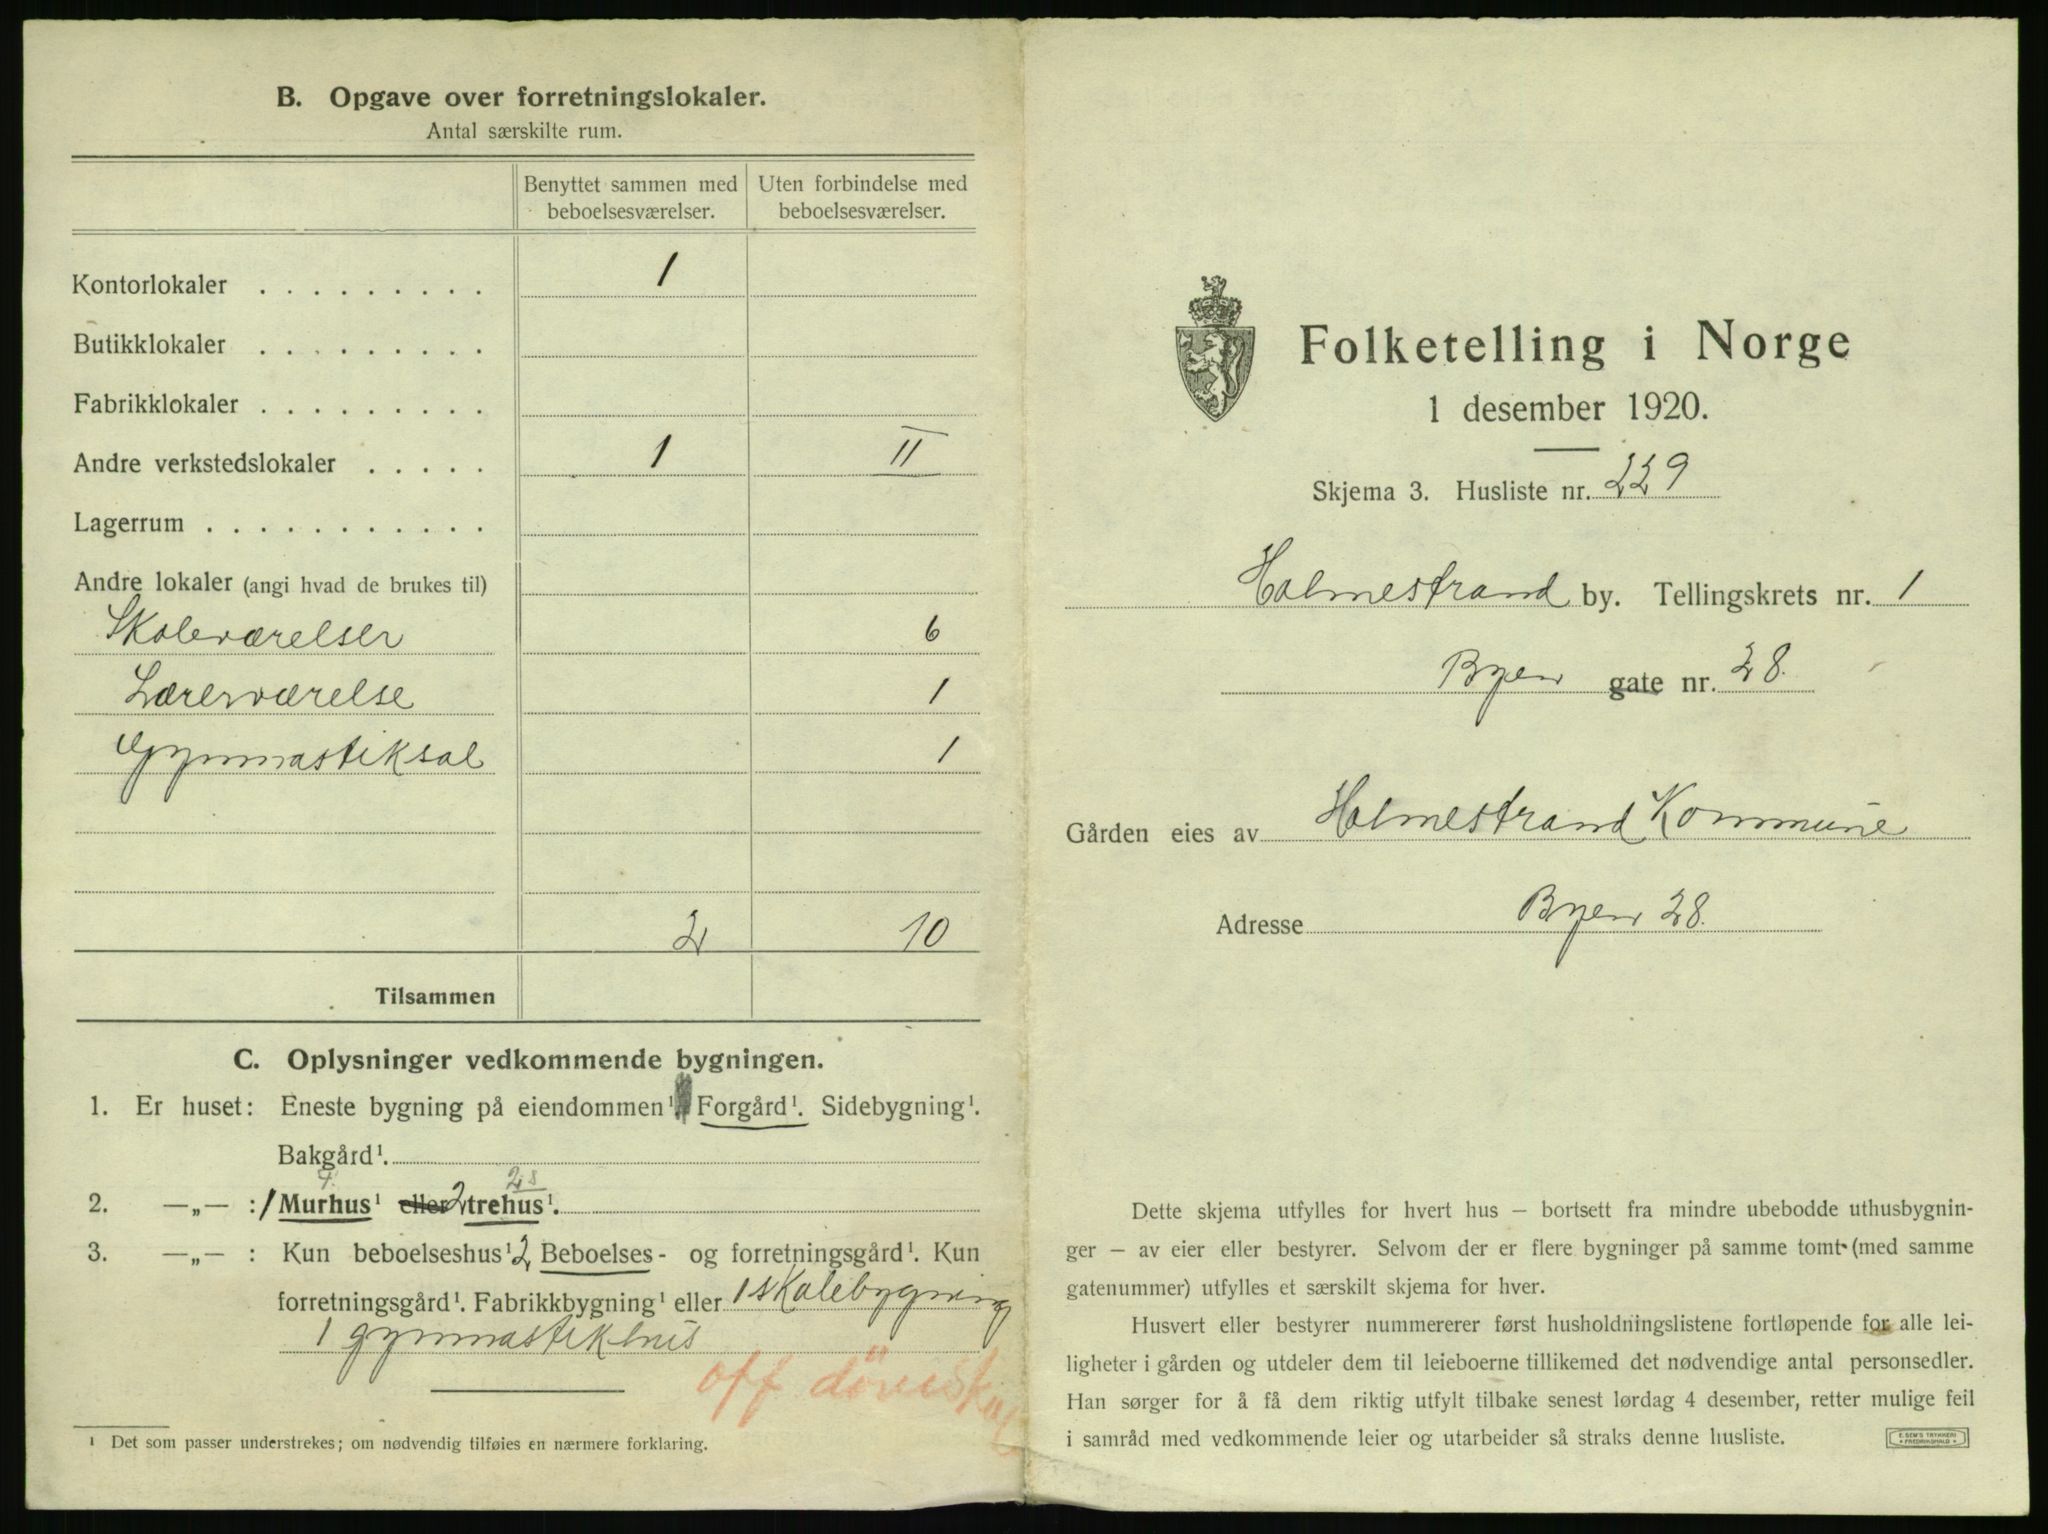 B. Opgave over forretningslokaler.
Antal særskilte rum.
Benyttet sammen med beboelsesværelser.
Uten forbindelse med beboelsesværelser.
Kontorlokaler . . . . . . . . . 1
Butikklokaler . . . . . . . . .
Fabrikklokaler . . . . . . . . .
Andre verkstedslokaler . . . . . 1 II
Lagerrum . . . . . . . . . . .
Andre lokaler (angi hvad de brukes til)
Skoleværelser 6
Lærerværelse 1
Gymnastiksal 1
2 10
Tilsammen
C. Oplysninger vedkommende bygningen.
1. Er huset: Eneste bygning på eiendommen¹ Forgård¹. Sidebygning¹.
Bakgård¹.
2. —„— : 1 Murhus¹ eller 2 trehus¹.
3. —„— : Kun beboelseshus¹ 2 Beboelses- og forretningsgård¹. Kun
forretningsgård¹. Fabrikkbygning¹ eller 1 skolebygning
1 gymnastikhus
off døveskol
¹ Det som passer understrekes; om nødvendig tilføies en nærmere forklaring.
Folketelling i Norge
1 desember 1920.
Skjema 3. Husliste nr. 229
Holmestrand by. Tellingskrets nr. 1
Byen gate nr. 28.
Gården eies av Holmestrand Kommune
Adresse Byen 28.
Dette skjema utfylles for hvert hus — bortsett fra mindre ubebodde uthusbygnin-
ger — av eier eller bestyrer. Selvom der er flere bygninger på samme tomt (med samme
gatenummer) utfylles et særskilt skjema for hver.
Husvert eller bestyrer nummererer først husholdningslistene fortløpende for alle lei-
ligheter i gården og utdeler dem til leieboerne tillikemed det nødvendige antal personsedler.
Han sørger for å få dem riktig utfylt tilbake senest lørdag 4 desember, retter mulige feil
i samråd med vedkommende leier og utarbeider så straks denne husliste.
E. SEM'S TRYKKERI
FREDRIKSHALD